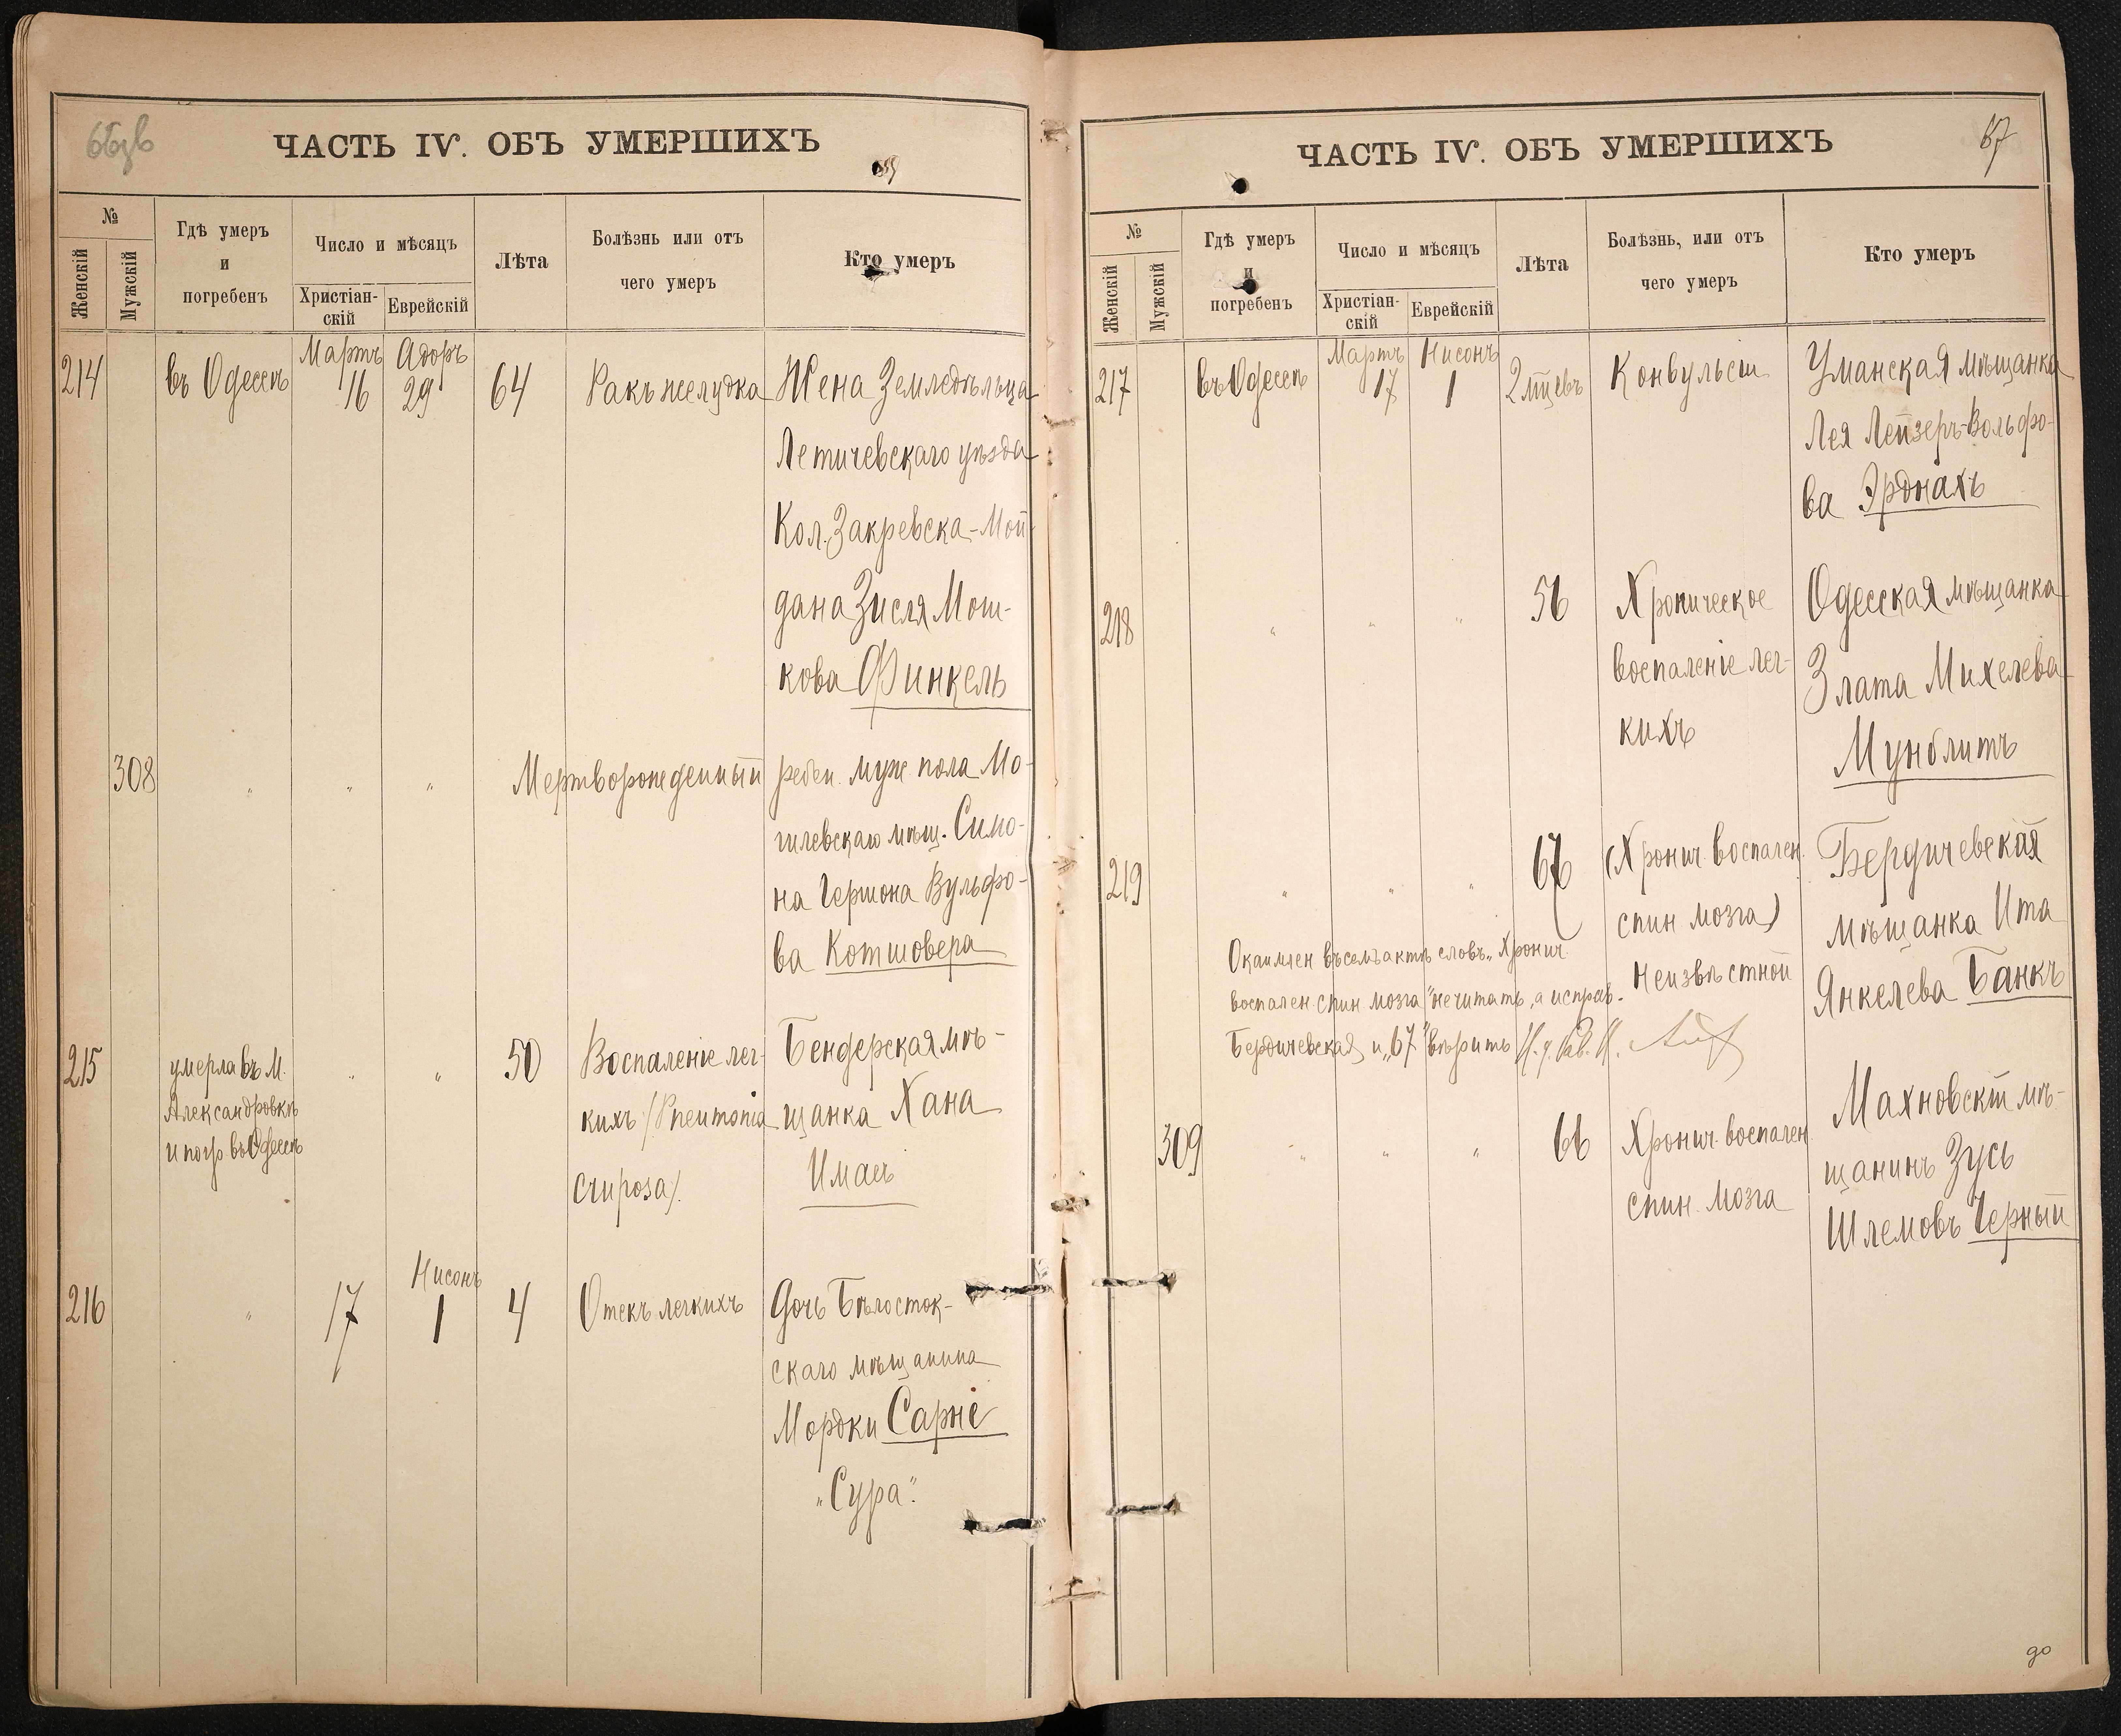 66зв
ЧАСТЬ IV. ОБЪ УМЕРШИХЪ
№
Женскій
Мужскій
Гдѣ умеръ
и
погребенъ
Число и мѣсяцъ
Христіан-
скій
Еврейскій
Лѣта
Болѣзнь или отъ
чего умеръ
Кто умеръ
214 въ Одессѣ Мартъ 16 Адоръ 29 64 Ракъ желудка Жена Земледѣльца
Летичевскаго уѣзда
Кол. Закревска-Мой-
дана Зисля Мош-
кова Финкель
308 " " " Мертворожденный ребен. муж. пола Мо-
гилевскаго мѣщ. Симо-
на Гершона Вульфо-
ва Котшовера
215 умерла въ М. " " 50 Воспаленіе лег- Бендерская мѣ-
Александровкѣ кихъ (Pneumonia щанка Хана
и погр. въ Одессѣ Имас
cruposa).
216 " 17 Нисонъ 1 4 Отекъ легкихъ Дочь Бѣлосток-
скаго мѣщанина
Мордки Сарне
"Сура".
67
ЧАСТЬ IV. ОБЪ УМЕРШИХЪ
№
Женскій
Мужскій
Гдѣ умеръ
и
погребенъ
Число и мѣсяцъ
Христіан-
скій
Еврейскій
Лѣта
Болѣзнь, или отъ
чего умеръ
Кто умеръ
217 въ Одессѣ Мартъ 17 Нисонъ 1 2 мѣцевъ Конвульсіи Уманская мѣщанка
Лея Лейзеръ-Вольфо-
ва Эрднахъ
218 " " " 56 Хроническое Одесская мѣщанка
воспаленіе лег- Злата Михелева
кихъ Мунблитъ
219 " " " 67 (Хронич. воспален. Бердичевская
спин мозга) мѣщанка Ита
неизвѣстной Янкелева Банкъ
Окаимлен въ семъ актѣ словъ "Хронич.
воспален. спин мозга" нечитать, а исправ.
Бердичевская и "67" вѣрить И. д. Рав. Н.
309 " " " 66 Хронич. воспален. Махновскій мѣ-
спин. мозга щанинъ Зусь
Шлемовъ Черный
до